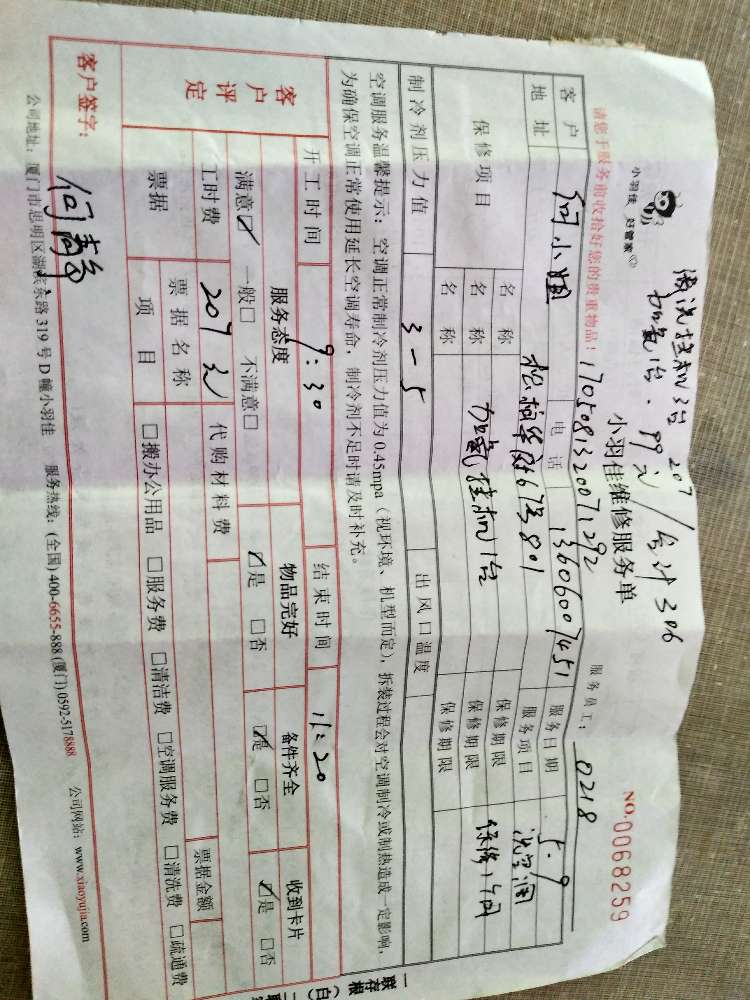 清洗挂机3台 207
加氟1台.99元 / 合计306
小羽佳 好管家
小羽佳维修服务单
NO.0068259
1705081320071292
请您于服务前收拾好您的贵重物品！
服务员工： 0218
客户 何小姐 电话 13606007451 服务日期 5.9
地址 松柏华庭67号801 服务项目 洗空调
保修项目 名称 保修期限
名称 加氟挂机1台 保修期限 保修1个月
名称 保修期限
制冷剂压力值 3-5 出风口温度
空调服务温馨提示：空调正常制冷剂压力值为0.45mpa（视环境、机型而定），拆装过程会对空调制冷或制热造成一定影响，
为确保空调正常使用延长空调寿命，制冷剂不足时请及时补充。
开工时间 9:30 结束时间 11:20
客户评定
服务态度 物品完好 备件齐全 收到卡片
满意☑ 一般□ 不满意□ ☑是 □否 ☑是 □否 ☑是 □否
工时费 207元 代购材料费
票据名称 票据金额
票据 项目 □搬办公用品 □服务费 □清洁费 □空调服务费 □清洗费 □疏通费
客户签字：
公司地址：厦门市思明区湖滨东路319号D幢小羽佳 服务热线：(全国)400-6655-888(厦门)0592-5178888 公司网站：www.xiaoyujia.com
一联存根（白）二联